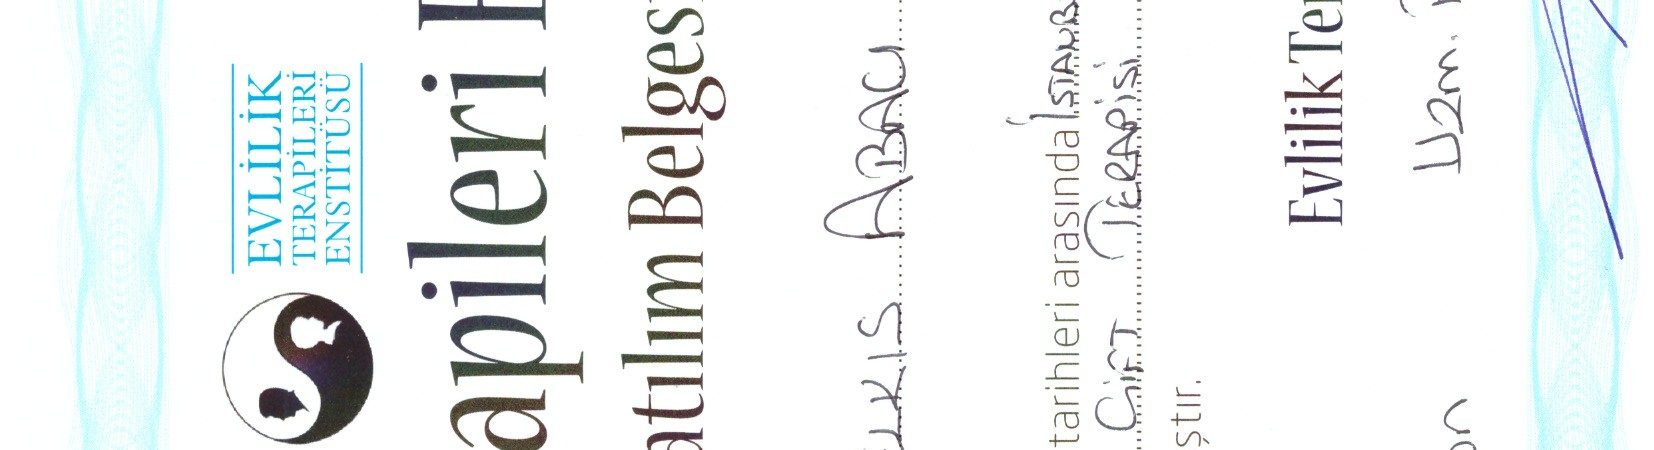 EVLİLİK
TERAPİLERİ
ENSTİTÜSÜ
apileri E
atılım Belges
ELKIS ABACI
tarihleri arasında İSTANB
ÇİFT TERAPİSİ
ştır.
Evlilik Ter
on Uzm.